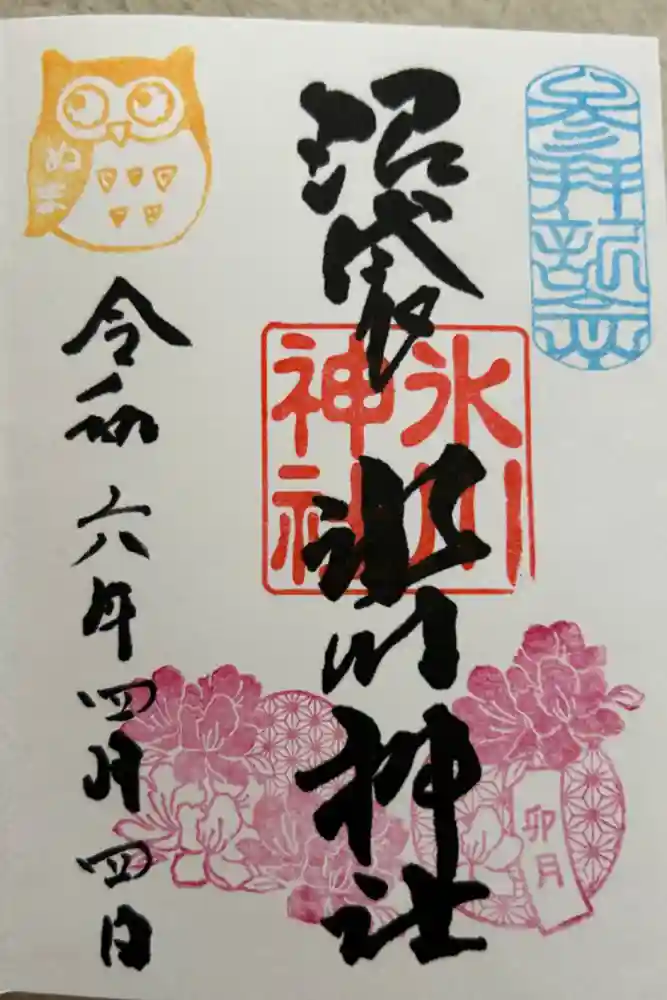 参拝記念
沼袋
氷川神社
氷川
神社
卯月
令和六年四月四日
ぬま